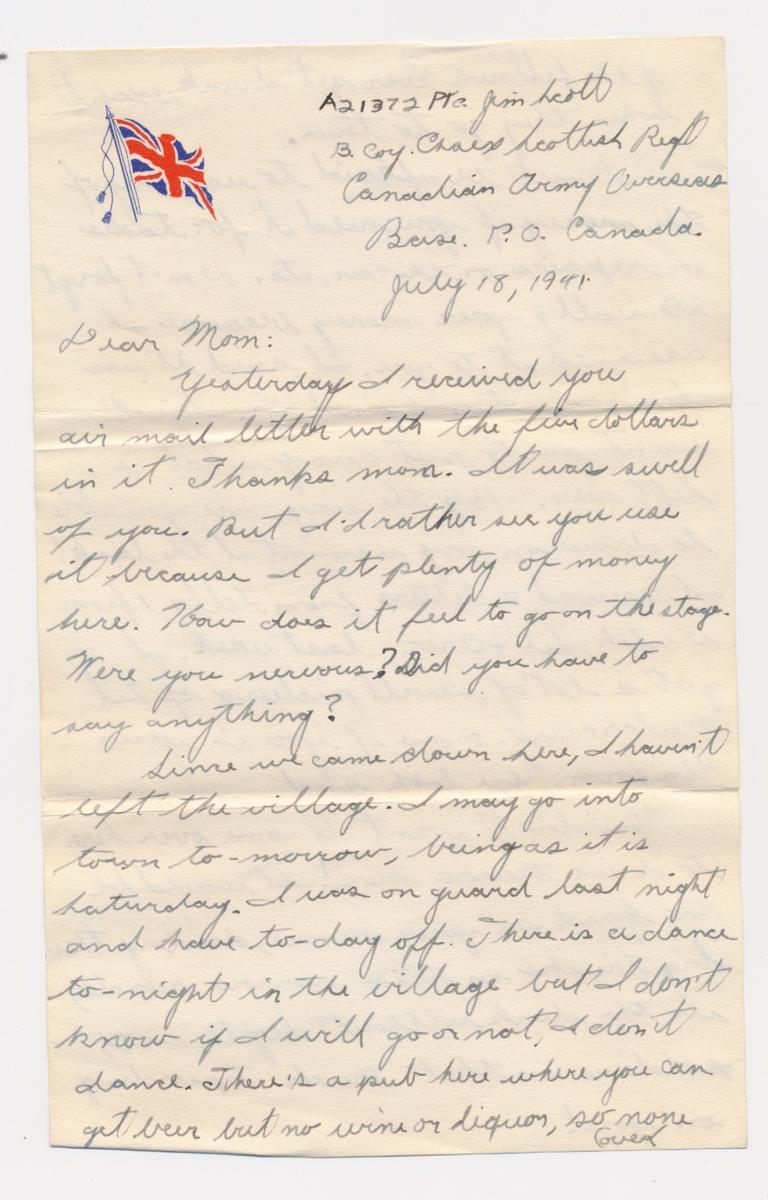 A21372 Pte. Jim Scott
B. Coy. Essex Scottish Regt
Canadian Army Overseas
Base. P.O. Canada.
July 18, 1941.
Dear Mom:
Yesterday I received you
air mail letter with the five dollars
in it. Thanks mom. It was swell
of you. But I'd rather see you use
it because I get plenty of money
here. How does it feel to go on the stage.
Were you nervous? Did you have to
say anything?
Since we came down here, I haven't
left the village. I may go into
town to-morrow, being as it is
Saturday. I was on guard last night
and have to-day off. There is a dance
to-night in the village but I don't
know if I will go or not, I don't
dance. There's a pub here where you can
get beer but no wine or liquor, so none
(over